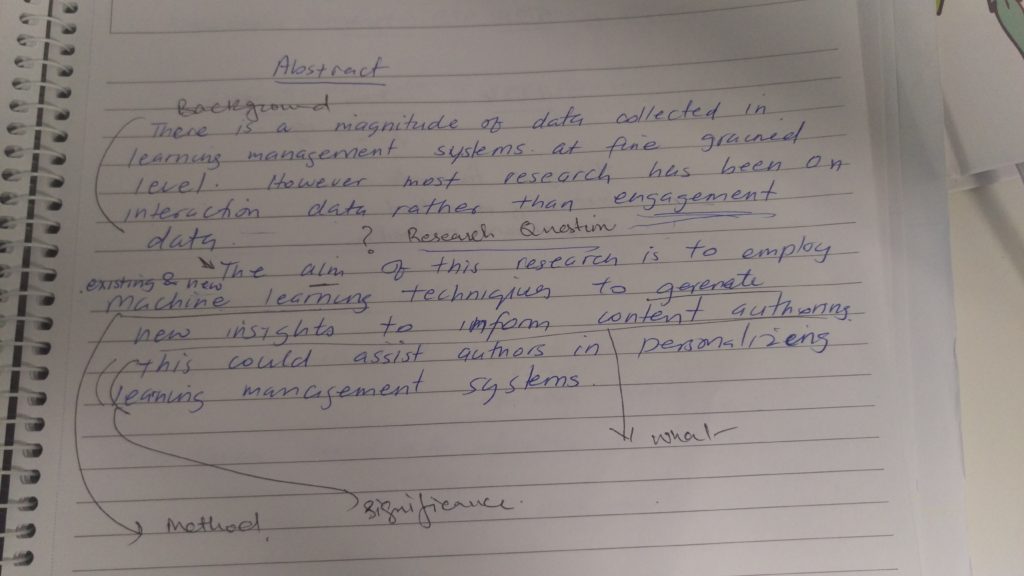 Abstract
Background
There is a magnitude of data collected in
learning management systems at fine grained
level. However most research has been on
interaction data rather than engagement
data
? Research Question
The aim of this research is to employ
existing & new
machine learning techniques to gerenate
new insights to inform content authoring.
This could assist authors in personalizing
learning management systems.
what
significance.
Method.